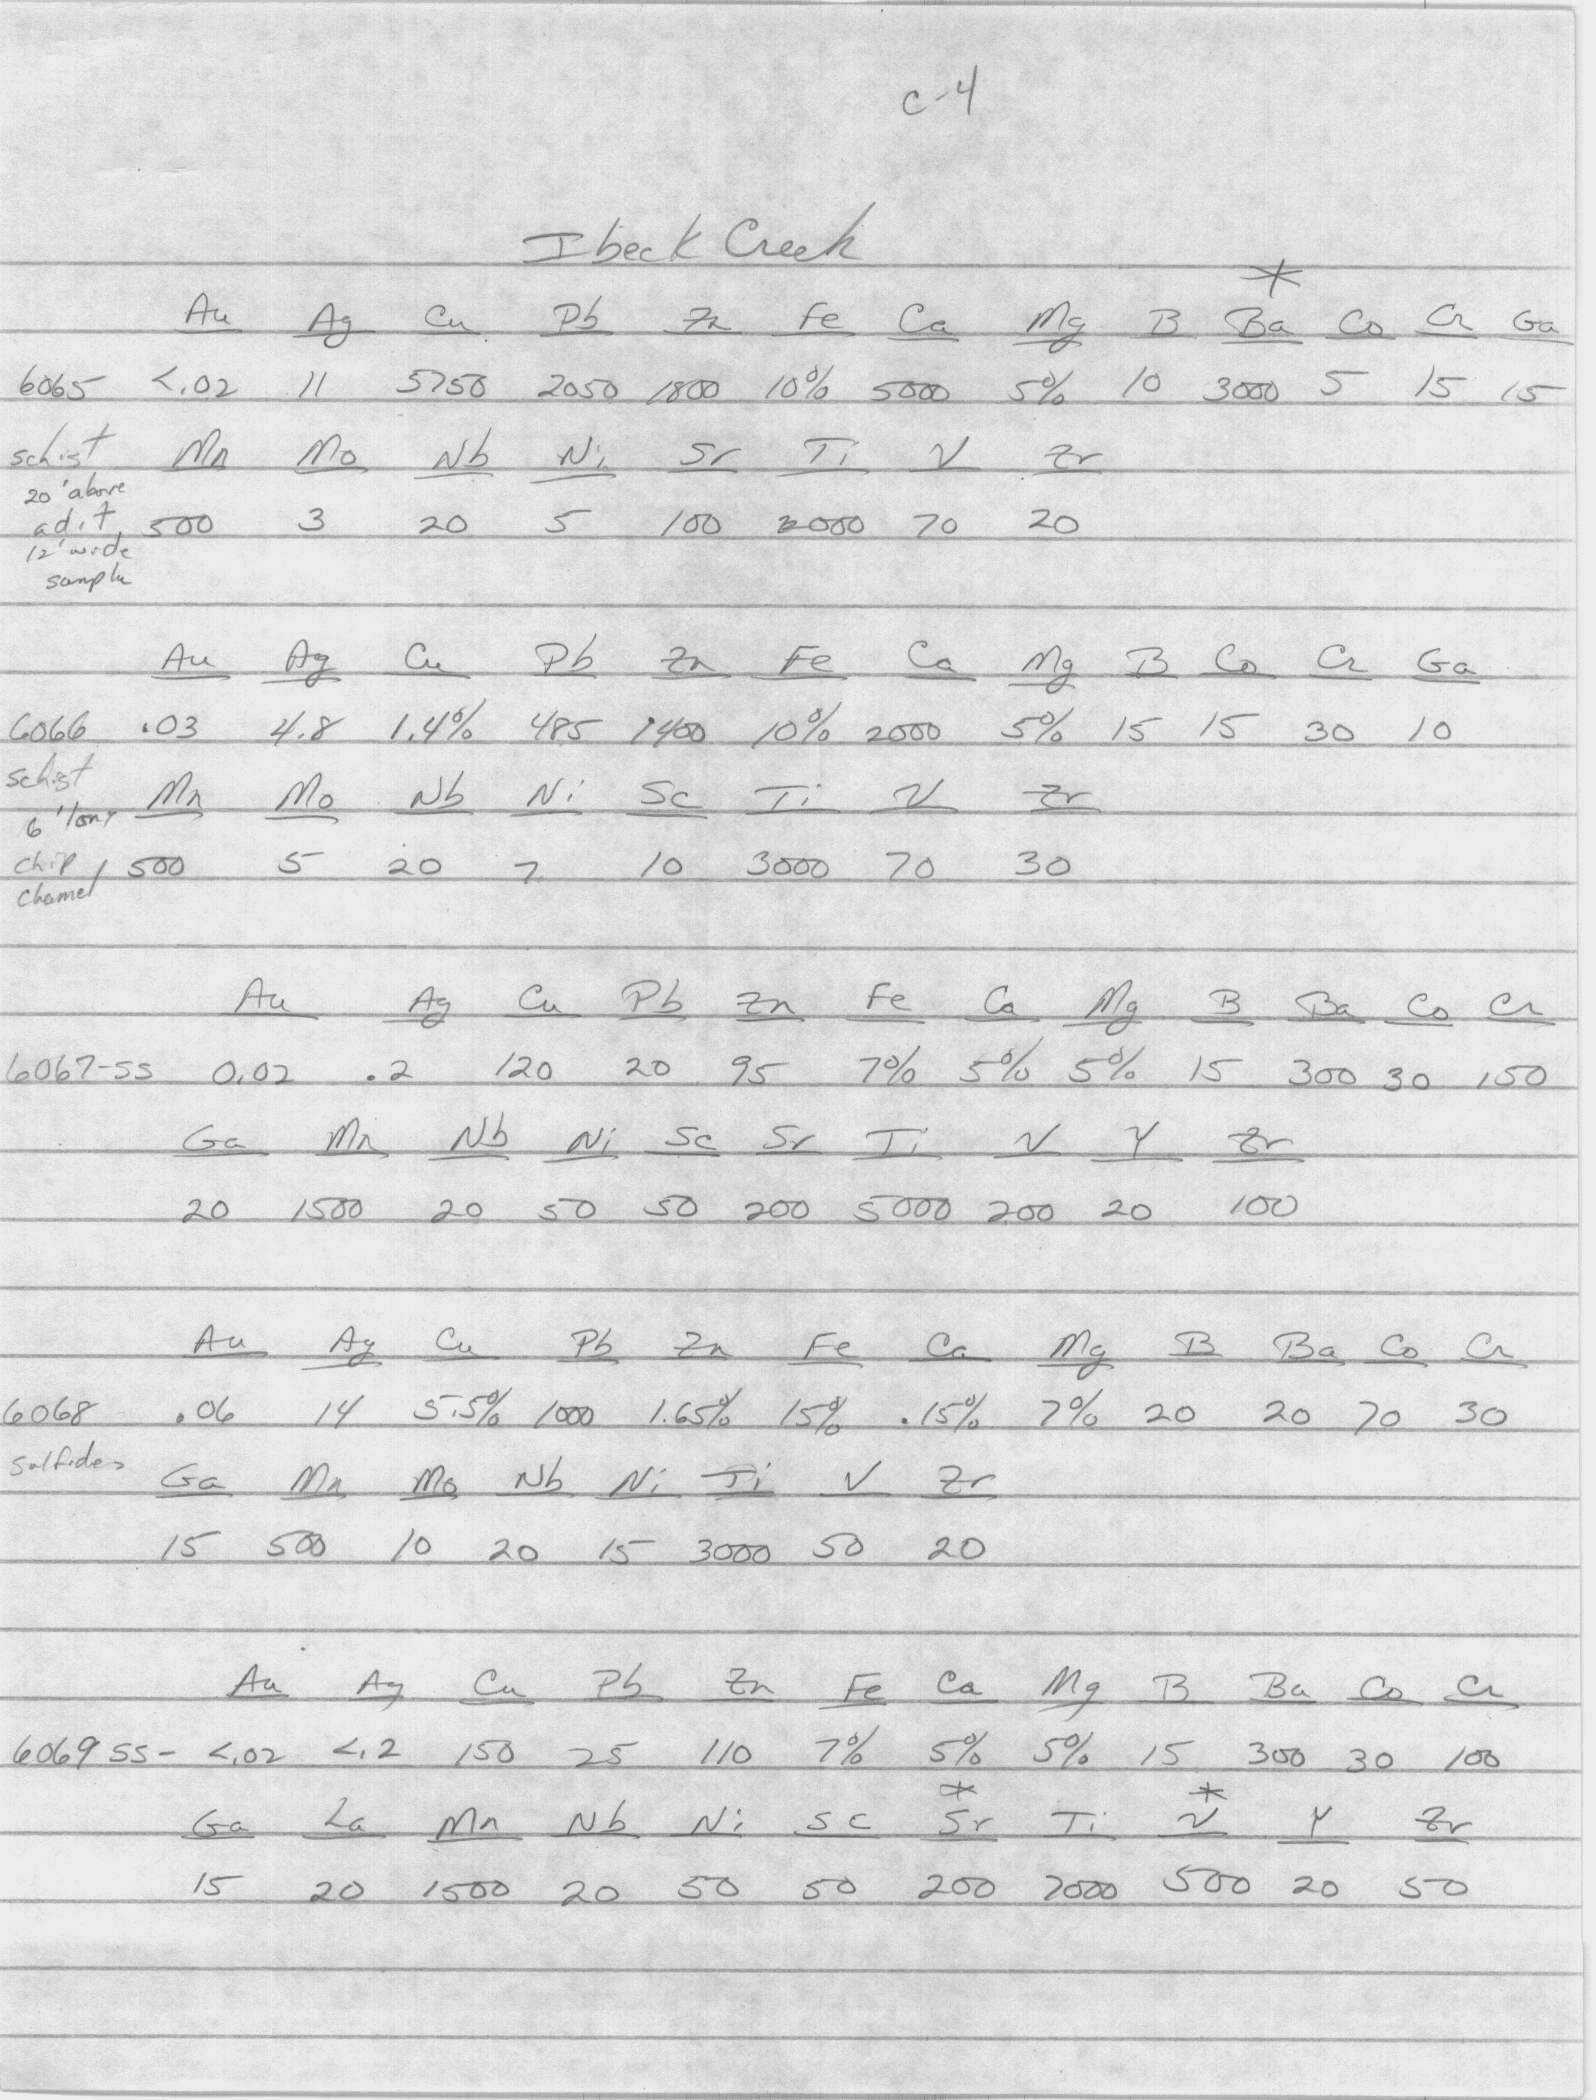 C-4
Ibeck Creek
*
Au Ag Cu Pb Zn Fe Ca Mg B Ba Co Cr Ga
6065 <.02 11 5750 2050 1800 10% 5000 5% 10 3000 5 15 15
schist Mn Mo Nb Ni Sr Ti V Zr
20' above
adit 500 3 20 5 100 2000 70 20
12' wide
sample
Au Ag Cu Pb Zn Fe Ca Mg B Co Cr Ga
6066 .03 4.8 1.4% 485 1400 10% 2000 5% 15 15 30 10
schist Mn Mo Nb Ni Sc Ti V Zr
6' long
chip 500 5 20 7 10 3000 70 30
channel
Au Ag Cu Pb Zn Fe Ca Mg B Ba Co Cr
6067-SS 0.02 .2 120 20 95 7% 5% 5% 15 300 30 150
Ga Mn Nb Ni Sc Sr Ti V Y Zr
20 1500 20 50 50 200 5000 200 20 100
Au Ag Cu Pb Zn Fe Ca Mg B Ba Co Cr
6068 .06 14 5.5% 1000 1.65% 15% .15% 7% 20 20 70 30
sulfides Ga Mn Mo Nb Ni Ti V Zr
15 500 10 20 15 3000 50 20
Au Ag Cu Pb Zn Fe Ca Mg B Ba Co Cr
6069 SS- <.02 <.2 150 25 110 7% 5% 5% 15 300 30 100
* *
Ga La Mn Nb Ni Sc Sr Ti V Y Zr
15 20 1500 20 50 50 200 7000 500 20 50